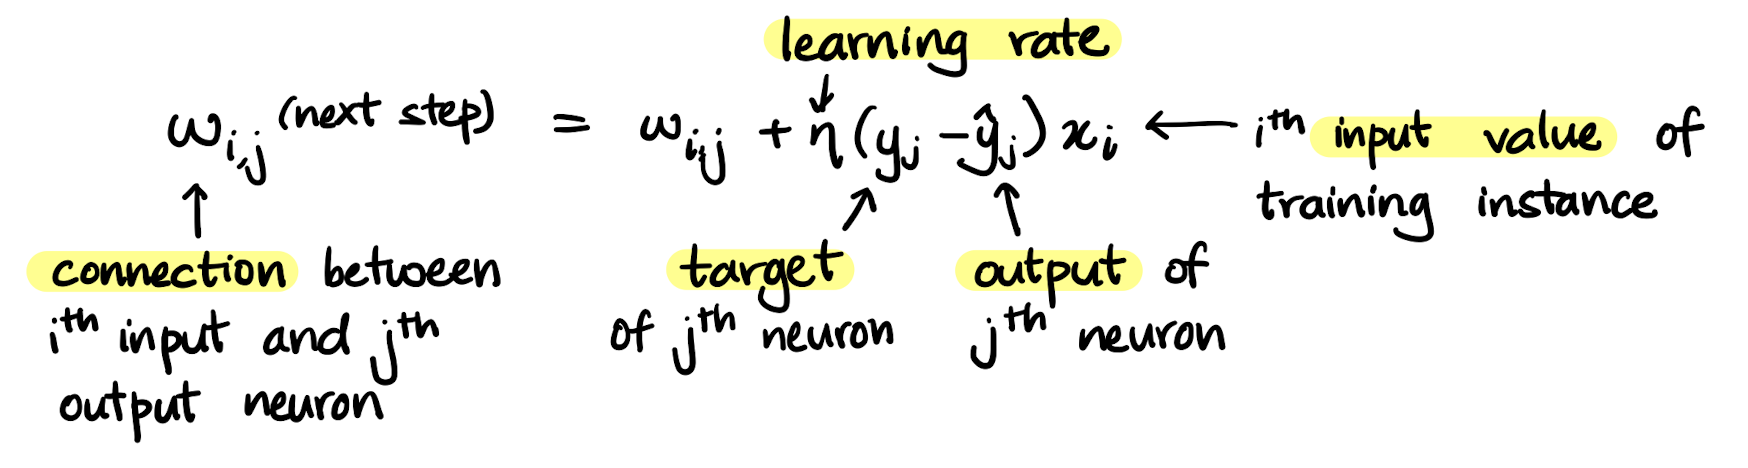 learning rate
w i,j (next step) = w i,j + η (y j − ŷ j) x i
i th input value of
training instance
connection between
i th input and j th
output neuron
target
of j th neuron
output of
j th neuron